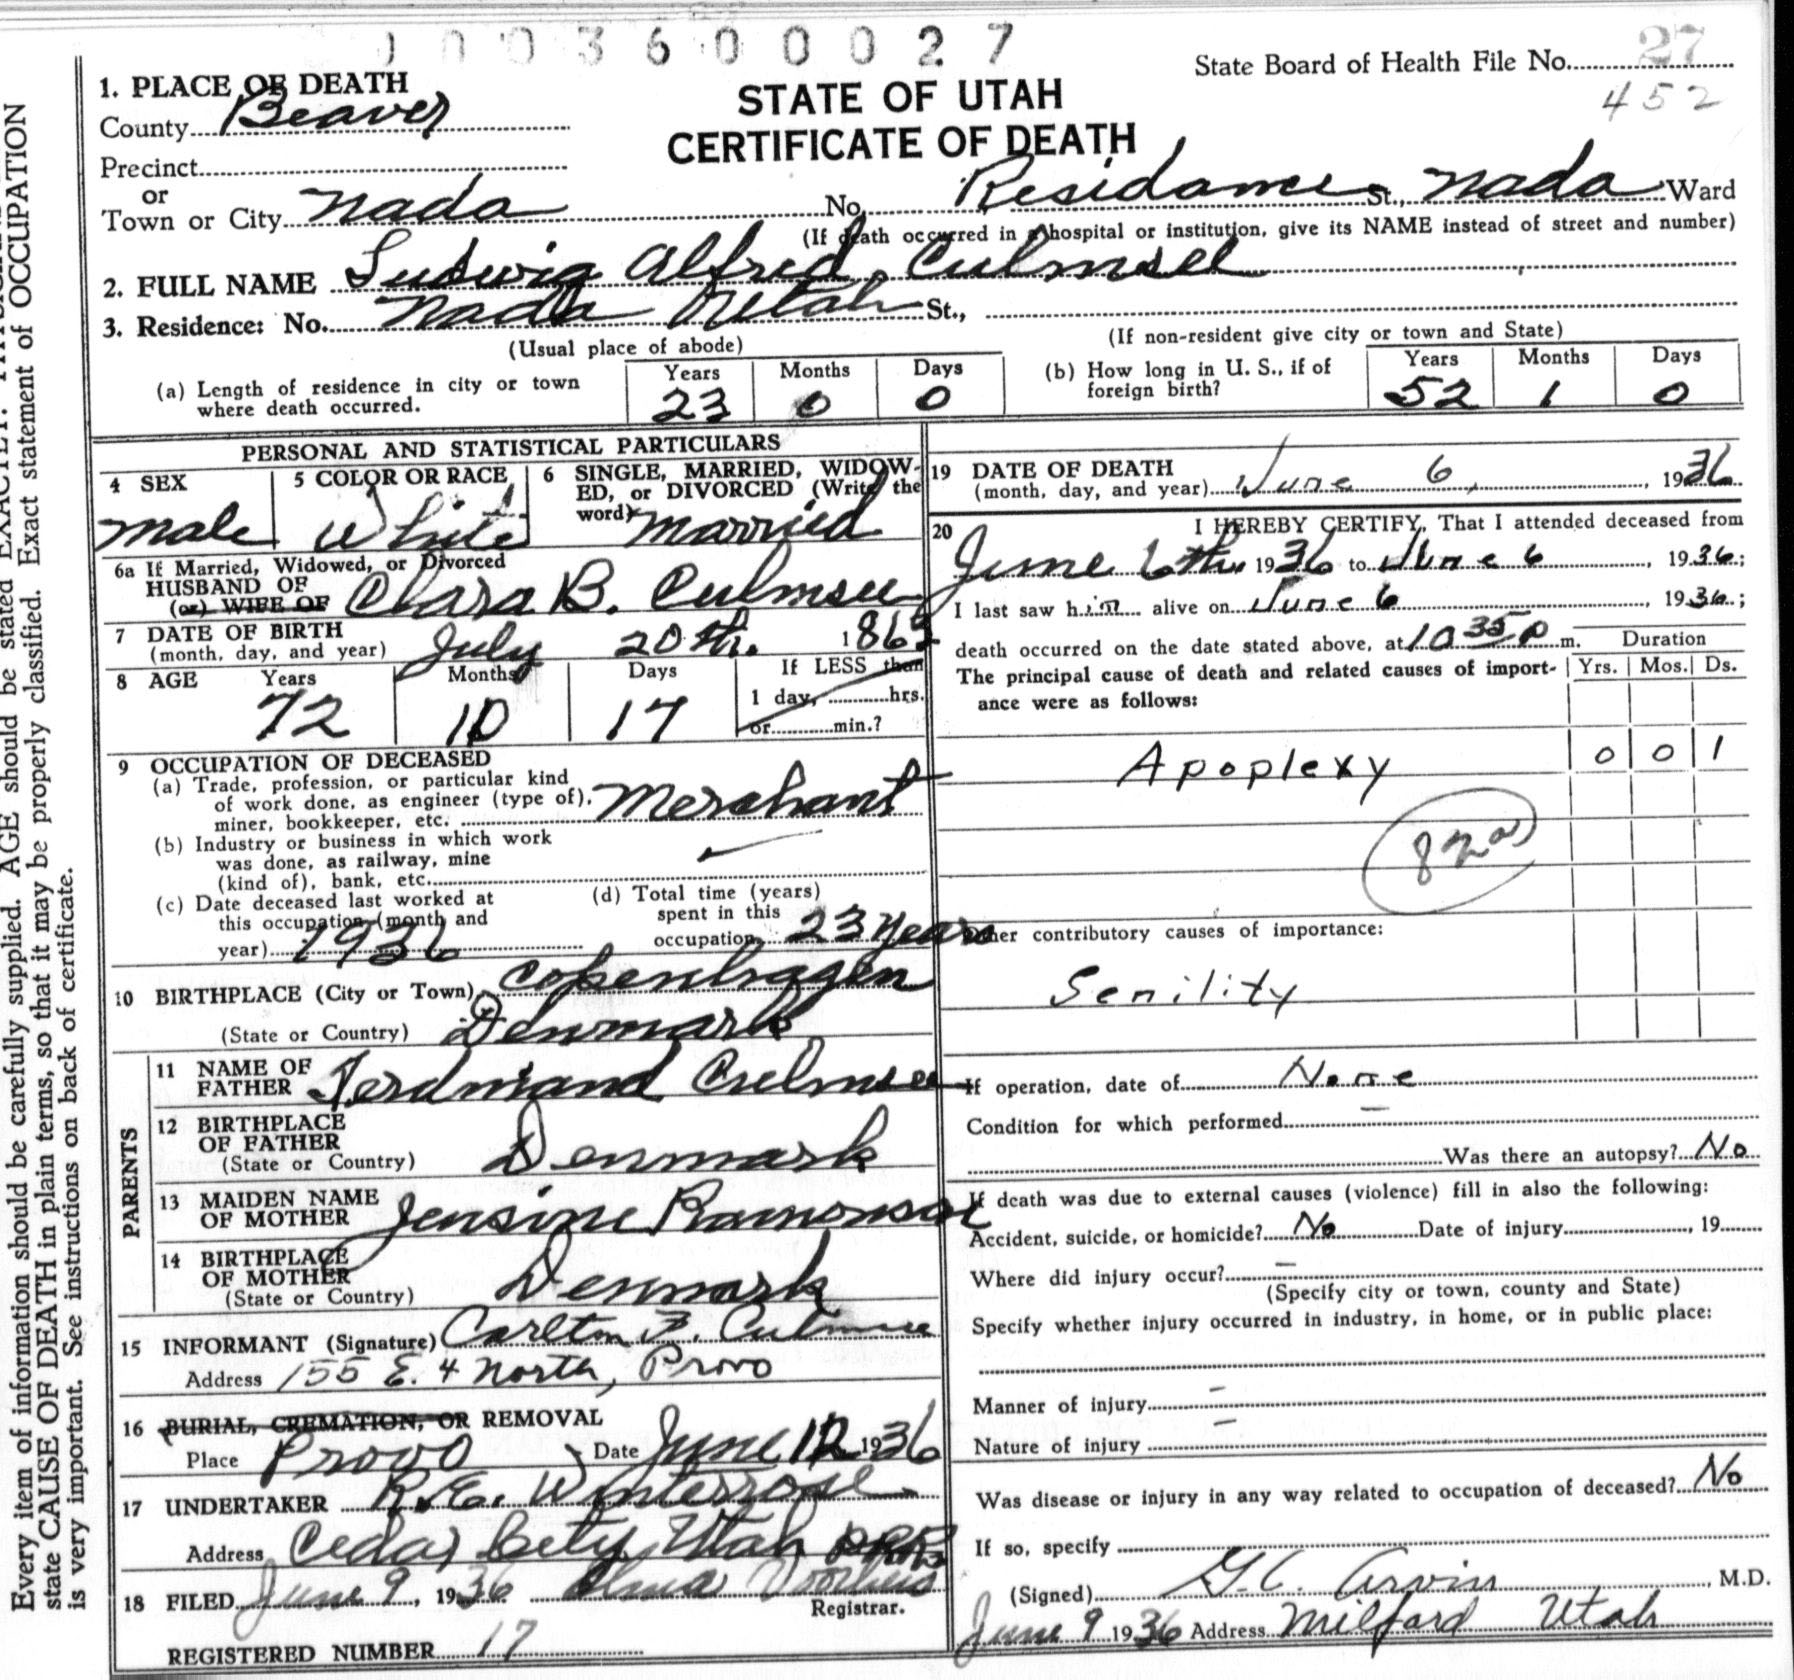 1003600027
State Board of Health File No. 27
452
STATE OF UTAH
CERTIFICATE OF DEATH
1. PLACE OF DEATH
County Beaver
Precinct
or
Town or City Nada No. Residance St., Nada Ward
(If death occurred in a hospital or institution, give its NAME instead of street and number)
2. FULL NAME Ludwig Alfred Culmsee
3. Residence: No. Nada Utah St.,
(Usual place of abode) (If non-resident give city or town and State)
(a) Length of residence in city or town where death occurred. Years 23 Months 0 Days 0
(b) How long in U. S., if of foreign birth? Years 52 Months 1 Days 0
PERSONAL AND STATISTICAL PARTICULARS
4 SEX male
5 COLOR OR RACE White
6 SINGLE, MARRIED, WIDOW-
ED, or DIVORCED (Write the
word) married
6a If Married, Widowed, or Divorced
HUSBAND OF
(or) WIFE OF Clara B. Culmsee
7 DATE OF BIRTH
(month, day, and year) July 20th. 1863
8 AGE Years 72 Months 10 Days 17 If LESS than
1 day, hrs.
or min.?
9 OCCUPATION OF DECEASED
(a) Trade, profession, or particular kind
of work done, as engineer (type of),
miner, bookkeeper, etc. Merchant
(b) Industry or business in which work
was done, as railway, mine
(kind of), bank, etc.
(c) Date deceased last worked at
this occupation (month and
year) 1936
(d) Total time (years)
spent in this
occupation 23 years
10 BIRTHPLACE (City or Town) Copenhagen
(State or Country) Denmark
PARENTS
11 NAME OF
FATHER Ferdinand Culmsee
12 BIRTHPLACE
OF FATHER
(State or Country) Denmark
13 MAIDEN NAME
OF MOTHER Jensine
14 BIRTHPLACE
OF MOTHER
(State or Country) Denmark
15 INFORMANT (Signature) Carlton F. Culmsee
Address 155 E. 4 North, Provo
16 BURIAL, CREMATION, OR REMOVAL
Place Provo Date June 1936
17 UNDERTAKER R. E. Winterrose
Address Cedar City Utah
18 FILED June 9, 1936 Alma Voorheis
Registrar.
REGISTERED NUMBER 17
19 DATE OF DEATH
(month, day, and year) June 6, 1936
20 I HEREBY CERTIFY, That I attended deceased from
June 6th 1936 to June 6, 1936;
I last saw him alive on June 6, 1936;
death occurred on the date stated above, at 10 35 P m. Duration
The principal cause of death and related causes of import-
ance were as follows: Yrs. Mos. Ds.
Apoplexy 0 0 1
Other contributory causes of importance:
Senility
If operation, date of None
Condition for which performed –
Was there an autopsy? No
If death was due to external causes (violence) fill in also the following:
Accident, suicide, or homicide? No Date of injury , 19
Where did injury occur? –
(Specify city or town, county and State)
Specify whether injury occurred in industry, in home, or in public place:
Manner of injury –
Nature of injury –
Was disease or injury in any way related to occupation of deceased? No
If so, specify
(Signed) G. C. Arvin, M.D.
June 9 1936 Address Milford Utah
Every item of information should be carefully supplied. AGE should be stated EXACTLY.
state CAUSE OF DEATH in plain terms, so that it may be properly classified. Exact statement of OCCUPATION
is very important. See instructions on back of certificate.